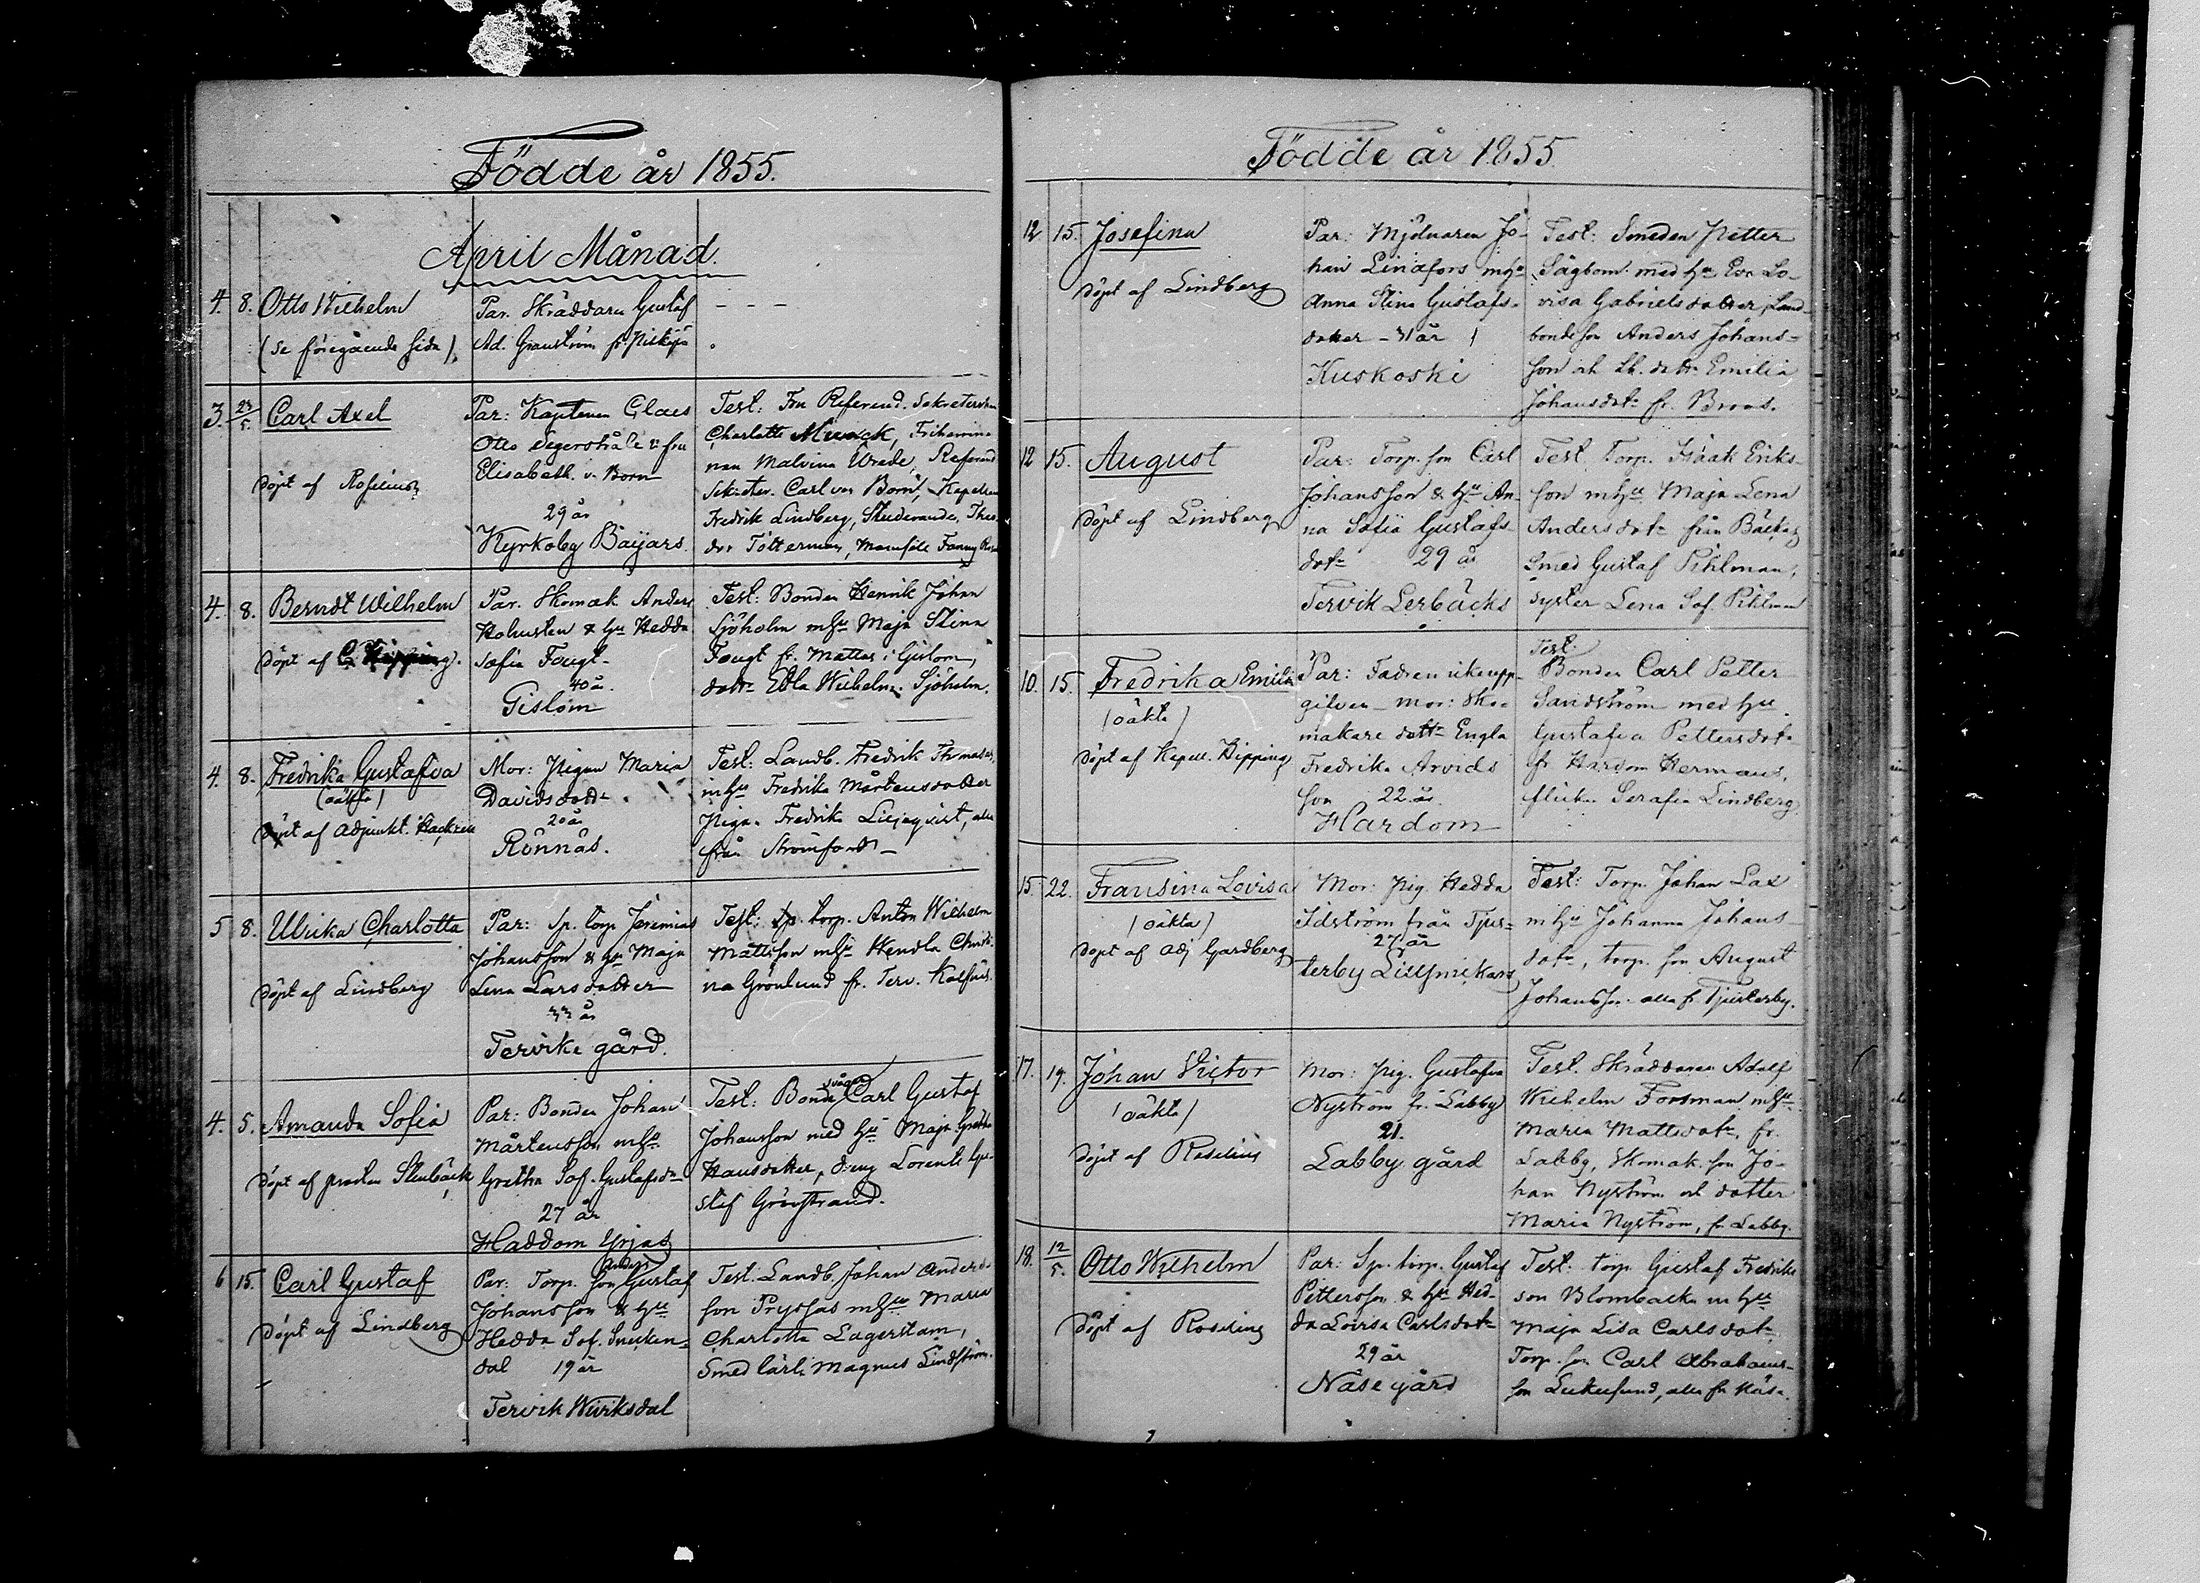 Födde år 1855.
April Månad.
4. 8. Otto Wilhelm
(se föregående sida).
Par. Skräddaren Gustaf
Ad. Granström fr.
3. 23/5 Carl Axel
döpt af Roselius
Par: Kaptenen Claes
Otto Segerstråle & fru
Elisabeth v. Born
29 år
Kyrkoby Baijars
Test: Fru Referend. Sekreterskan
Charlotte Munck, Friherrin-
nan Malvina Wrede, Referend
Sekreter. Carl von Born, Kapellan
Fredrik Lindberg, Studerande, Theo-
dor Tötterman, Mamsell Fanny
4. 8. Berndt Wilhelm
döpt af Hipping.
Par. Skomak Anders
Holmsten & hu Hedda
Sofia Fougt-
40 år.
Gislom
Test: Bonden Henrik Johan
Sjöholm mhu Maja Stina
Fougt fr. Mattas i Gislom,
dotr Edla Wilhelm. Sjöholm.
4. 8. Fredrika Gustafva
(oäkta)
döpt af Adjunkt.
Mor: Pigan Maria
Davidsdotr
20 år
Rönnäs.
Test: Landb. Fredrik Thomass.
mhu Fredrika Mårtensdotter
Pigan Fredrika Liljeqvist, alla
från Strömfors –
5 8. Ulrika Charlotta
döpt af Lindberg
Par: Sp. torp Jeremias
Johansson & hu Maja
Lena Larsdotter
33 år
Tervike gård.
Test: Sp. torp. Anton Wilhelm
Mattsson mhu Hendla Christi-
na Grönlund fr. Terv. Kalfnäs.
4. 5. Amanda Sofia
döpt af prosten Stenbäck
Par: Bonden Johan
Mårtensson mhu
Gretha Sof. Gustafsdr
27 år
Haddom Yrjas
Test: Bonde svåger Carl Gustaf
Johansson med hu Maja Gretha
Hansdotter, dreng Lorentz Gu-
staf Grönstrand.
6 15. Carl Gustaf
döpt af Lindberg
Par: Torp. son Gustaf
Anders
Johansson & hu
Hedda Sof. Snecken-
dal 19 år
Tervik Wiriksdal
Test. Landb. Johan Anders-
son Pryssas mhu Maria
Charlotta Lagerstam,
Smed lärl. Magnus Lindström.
Födde år 1855
12 15. Josefina
döpt af Lindberg
Par: Mjölnaren Jo-
han Lindfors mhu
Anna Stina Gustafs-
dotter – 31 år
Kuskoski
Test: Smeden Petter
Sågbom med hu Eva Lo-
visa Gabrielsdotter, Land-
bondeson Anders Johans-
son och Lb. dotr Emilia
Johansdotr fr. Broas.
12 15. August
döpt af Lindberg
Par: Torp. son Carl
Johansson & hu An-
na Sofia Gustafs-
dotr 29 år
Tervik Lerbäcks
Test. Torp. Isaak Eriks-
son mhu Maja Lena
Andersdotr från Bäckas,
Smed Gustaf Pihlman,
Syster Lena Sof. Pihlman
10. 15. Fredrika Emilia
(oäkta)
döpt af Kapell. Hipping
Par: Fadren icke upp-
gifven – mor: Sko-
makare dottr Engla
Fredrika Arvids
son 22 år.
Hardom
Test:
Bonden Carl Petter
Sandström med hu
Gustafva Pettersdotr
fr Hardom Hermans,
flickan Serafia Lindberg
15. 22. Fransina Lovisa
(oäkta)
döpt af Adj Gardberg
Mor: pig. Hedda
Idström från Tjus-
27 år
terby Lillmickars
Test: Torp. Johan Lax
mhu Johanna Johans
dotr, torp. son August
Johansson alla fr Tjusterby.
17. 19. Johan Victor
(oäkta)
döpt af Roselius
Mor: pig. Gustafva
Nyström fr. Labby
21.
Labby gård
Test. Skräddaren Adolf
Wilhelm Forsman mhu
Maria Mattsdotr, fr.
Labby, Skomak. son Jo-
han Nyström och dotter
Maria Nyström, fr Labby.
18. 12/5. Otto Wilhelm
döpt af Roselius
Par: Sp. torp. Gustaf
Pettersson & hu Hed-
da Lovisa Carlsdotr
29 år
Näse gård
Test: torp. Gustaf Fredriks
son Blombacka mhu
Maja Lisa Carlsdotr
Torp. son Carl Abrahams-
son, alla fr Näse.